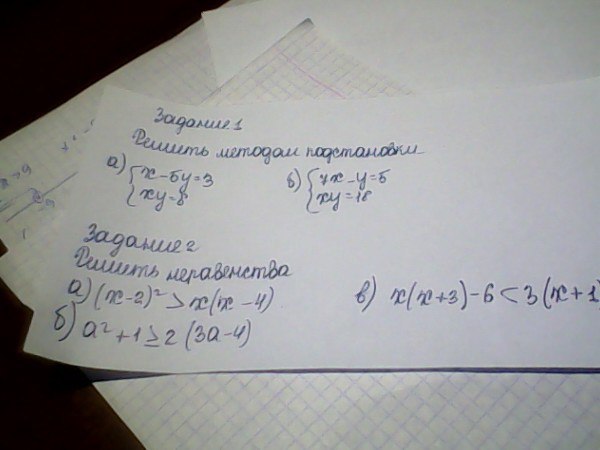 Задание 1
Решить методом подстановки
а) { x - 5y = 3
{ xy = 8
в) { 7x - y = 5
{ xy = 18
Задание 2
Решить неравенства
а) (x - 2)² > x(x - 4)
б) a² + 1 ≥ 2 (3a - 4)
в) x(x + 3) - 6 < 3 (x + 1)